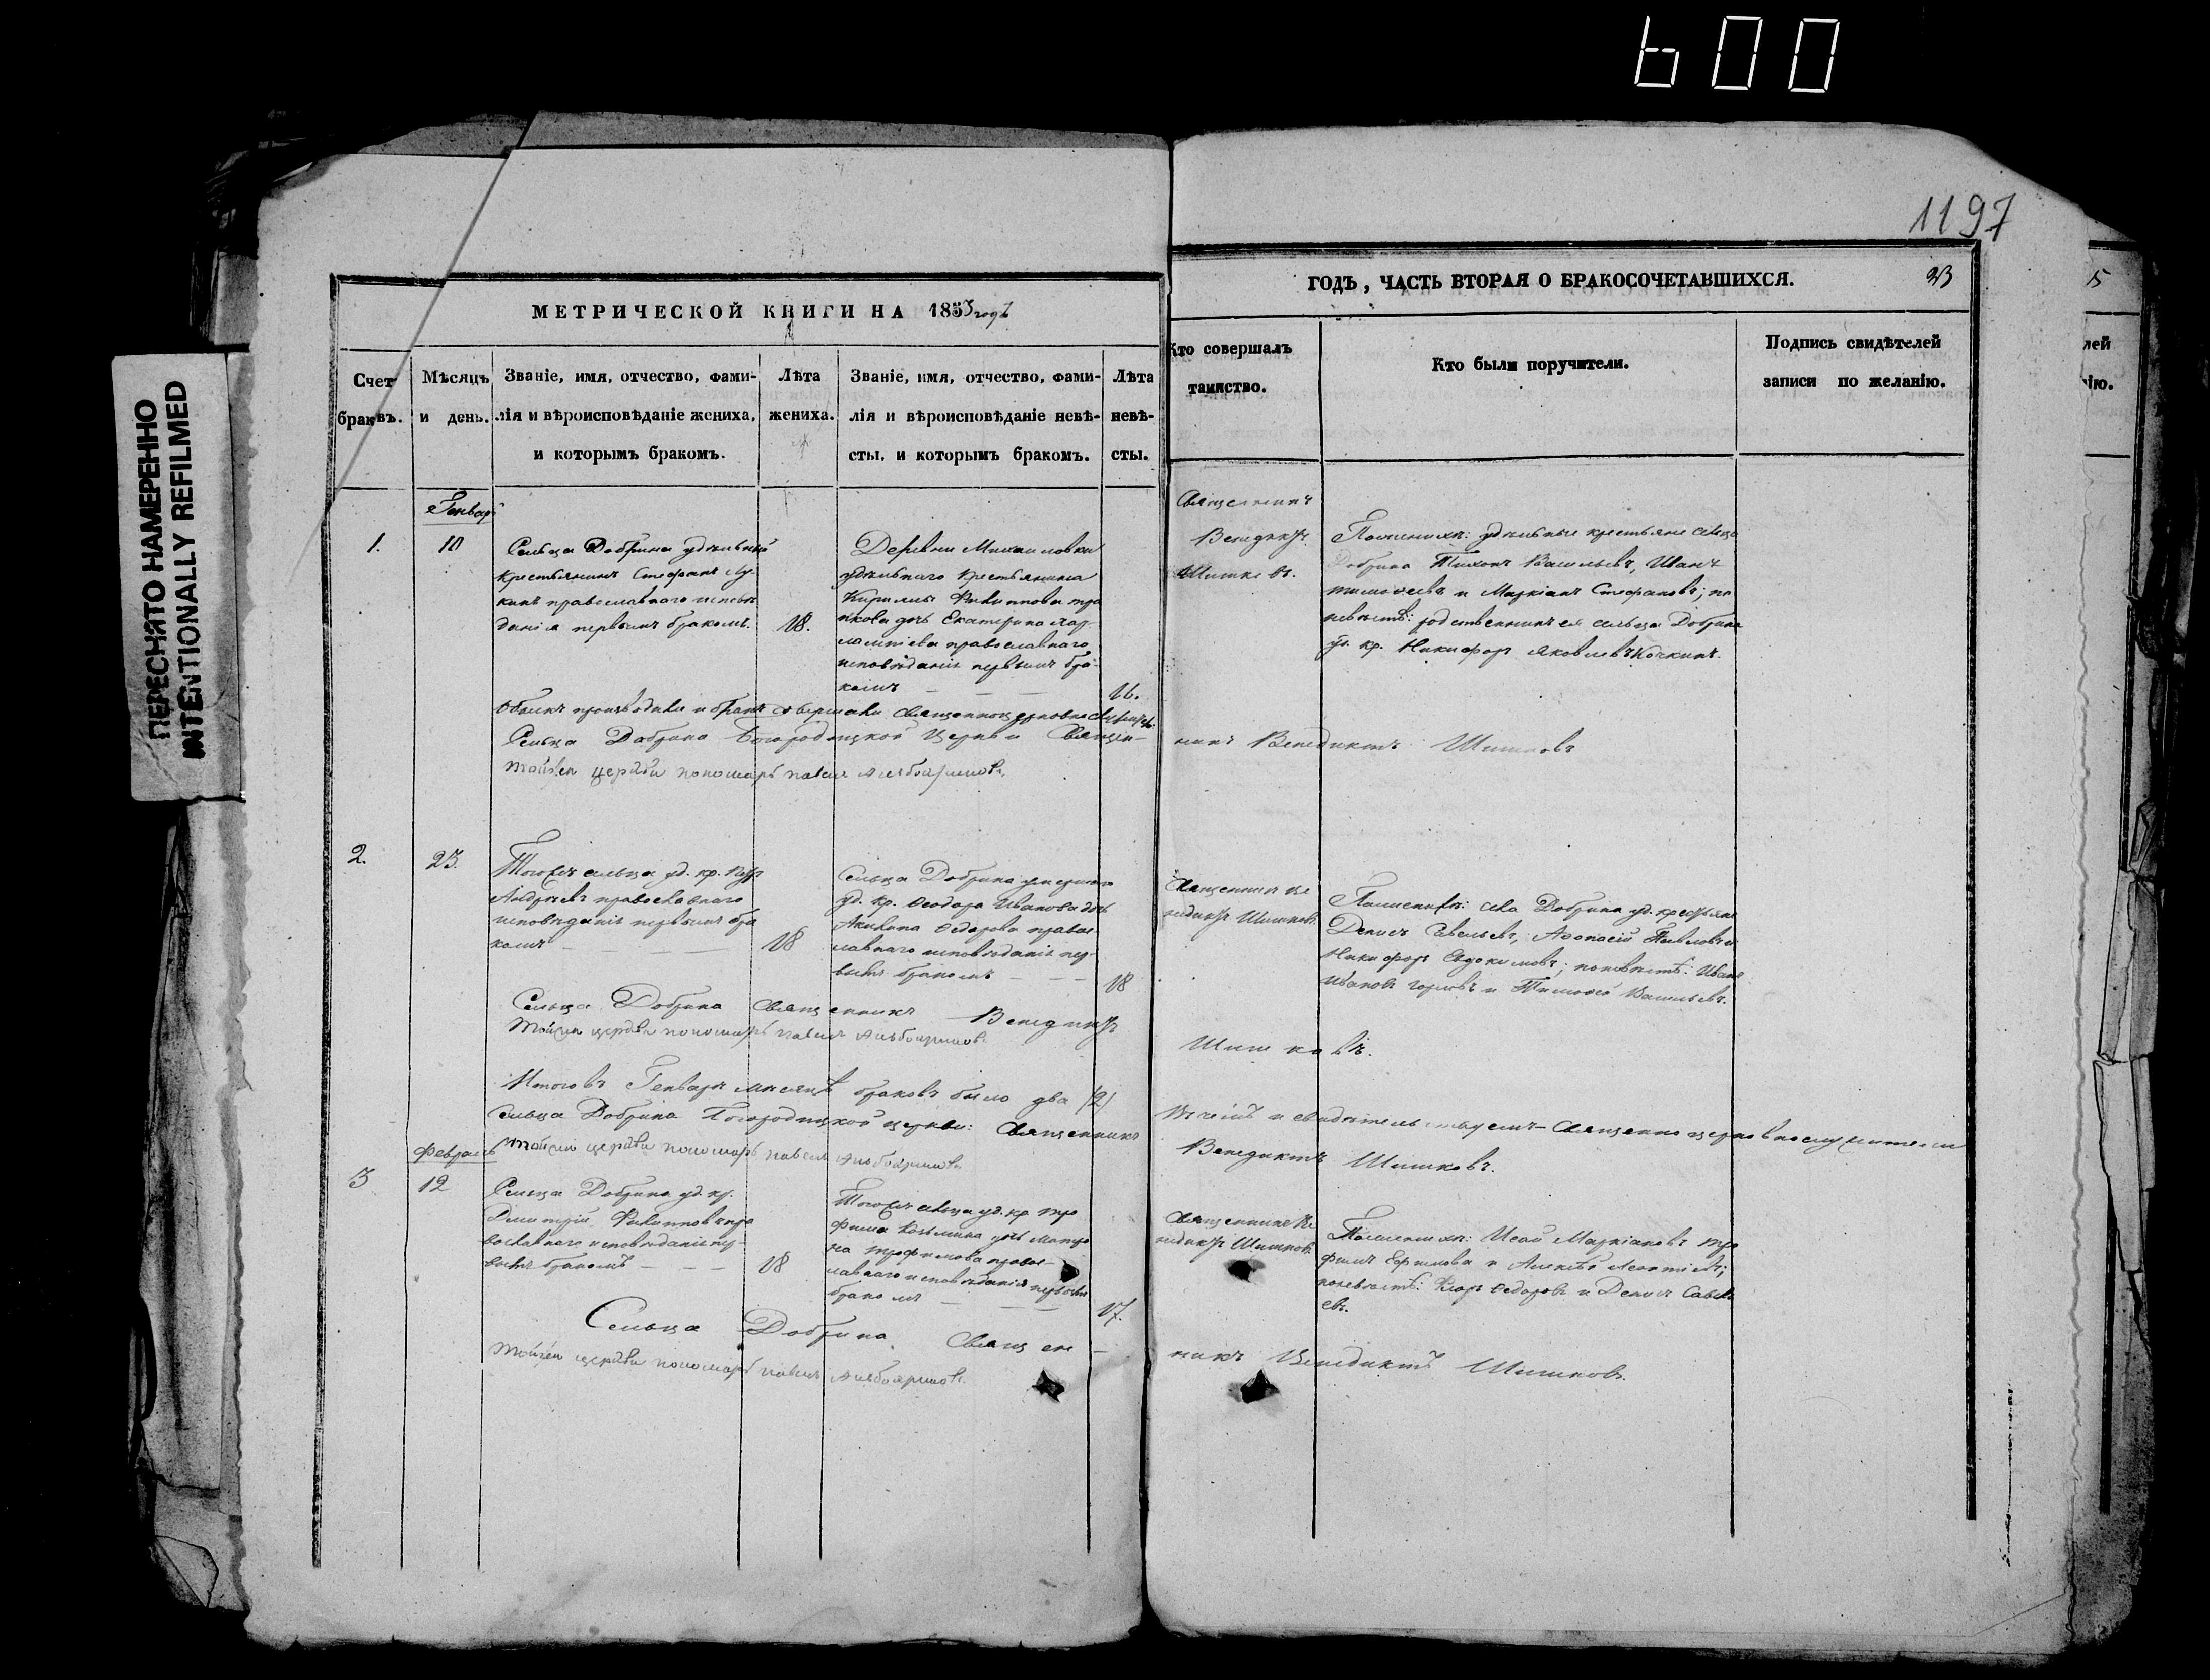 600
ПЕРЕСНЯТО НАМЕРЕННО
INTENTIONALLY REFILMED
1197
МЕТРИЧЕСКОЙ КНИГИ НА 1853 годъ
ГОДЪ, ЧАСТЬ ВТОРАЯ О БРАКОСОЧЕТАВШИХСЯ.
23
Счет браквъ.
Мѣсяцъ и день.
Званіе, имя, отчество, фами-
лія и вѣроисповѣданіе жениха,
и которымъ бракомъ.
Лѣта
жениха.
Званіе, имя, отчество, фами-
лія и вѣроисповѣданіе невѣ-
сты, и которымъ бракомъ.
Лѣта
невѣ-
сты.
Кто совершалъ
таинство.
Кто были поручители.
Подпись свидѣтелей
записи по желанію.
Генварь
1.
10
Сельца Добрина удѣльный
крестьянинъ Стефанъ Лу-
кинъ православнаго исповѣ
данія первымъ бракомъ.
18.
Деревни Михаиловки
удѣльнаго крестьянина
Филиппова
дочь Екатерина Хар-
лампіева православнаго
исповѣданія первымъ бра-
комъ
16.
Священникъ
Венедиктъ
Шишковъ.
По женихѣ: удѣльные крестьяне сельца
Добрина Тихонъ Васильевъ, Иванъ
Тимофеевъ и Маркіанъ Стефановъ; по
невѣстѣ: родственникъ ея сельца Добрина
уд. кр. Никифоръ Яковлевъ Кочкинъ.
Обыскъ производили и бракъ совершали священноцерковнослужители
Сельца Добрина Богородицкой Церкви Священ-
никъ Венедиктъ Шишковъ
Тойже церкви пономарь Павелъ
2.
23.
Тогожъ сельца уд. кр. Петръ
Андреевъ православнаго
исповѣданія первымъ бра
комъ
18
Сельца Добрина умершаго
уд. кр. Феодора Иванова дочь
Акилина Федорова правос-
лавнаго исповѣданія пер-
вымъ бракомъ
18
Священникъ Ве
недиктъ Шишковъ.
По женихѣ: села Добрина уд. крестьяне
Денисъ Савельевъ, Афонасій Павловъ и
Никифоръ Евдокимовъ; по невѣстѣ: Иванъ
Ивановъ и Тимофей Васильевъ.
Сельца Добрина Священникъ Венедиктъ
Шишковъ.
Тойже церкви пономарь Павелъ
Итого въ Генварѣ мѣсяцѣ браковъ было два /2/
Въ чемъ и свидѣтельствуемъ Священно церковнослужители
Сельца Добрина Богородицкой церкви: Священникъ
Венедиктъ Шишковъ.
Тойже церкви пономарь Павелъ
Февраль
3
12
Сельца Добрина уд. кр.
Дмитрій Филипповъ пра
вославнаго исповѣданія пер-
вымъ бракомъ
18
Тогожъ сельца уд. кр. Тро
фима Козьмина дочь Матро
на Трофимова правос-
лавнаго исповѣданія первымъ
бракомъ
17.
Священникъ Ве
недиктъ Шишковъ.
По женихѣ: Исай Маркіановъ Тро
фимъ Ефимовъ и Алексѣй Леонтіевъ;
по невѣстѣ: Егоръ Федоровъ и Денисъ Савель
евъ.
Сельца Добрина Священ-
никъ Венедиктъ Шишковъ.
Тойже церкви пономарь Павелъ
15
лей
нію.